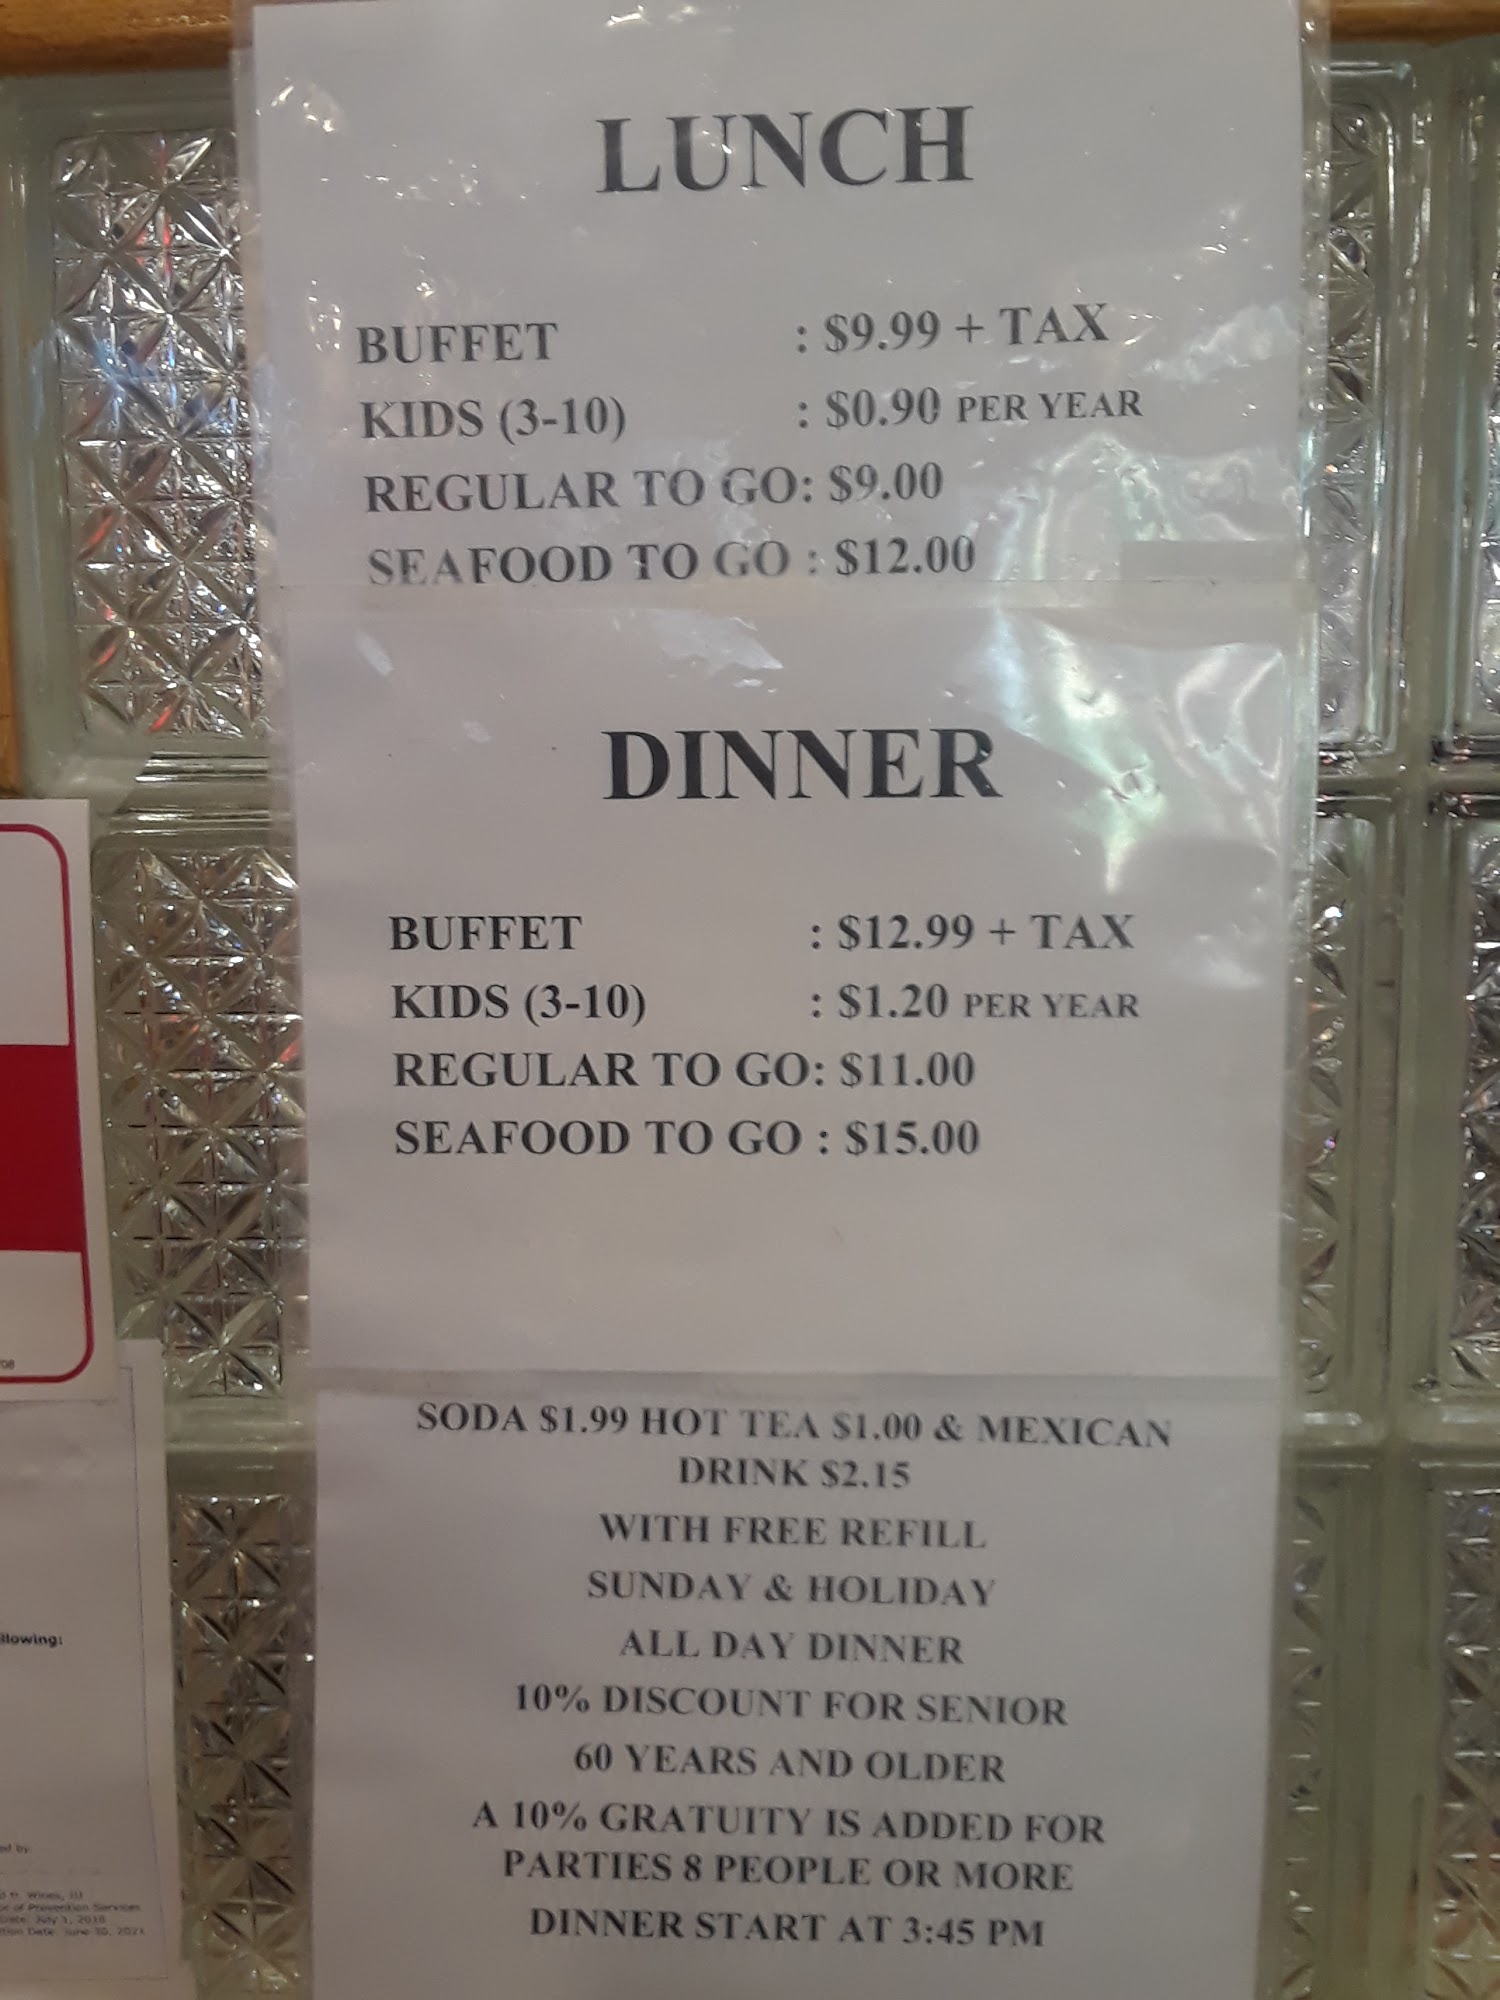 LUNCH
BUFFET : $9.99 + TAX
KIDS (3-10) : $0.90 PER YEAR
REGULAR TO GO: $9.00
SEAFOOD TO GO : $12.00
DINNER
BUFFET : $12.99 + TAX
KIDS (3-10) : $1.20 PER YEAR
REGULAR TO GO: $11.00
SEAFOOD TO GO : $15.00
SODA $1.99 HOT TEA $1.00 & MEXICAN
DRINK $2.15
WITH FREE REFILL
SUNDAY & HOLIDAY
ALL DAY DINNER
10% DISCOUNT FOR SENIOR
60 YEARS AND OLDER
A 10% GRATUITY IS ADDED FOR
PARTIES 8 PEOPLE OR MORE
DINNER START AT 3:45 PM
llowing:
ed by
Wines, III
of Prevention Services
Date: July 1, 2018
tion Date: June 30, 2021